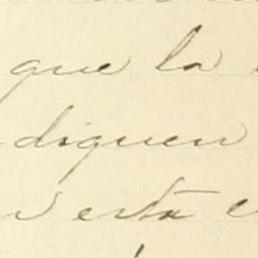 que la
diguen
esta